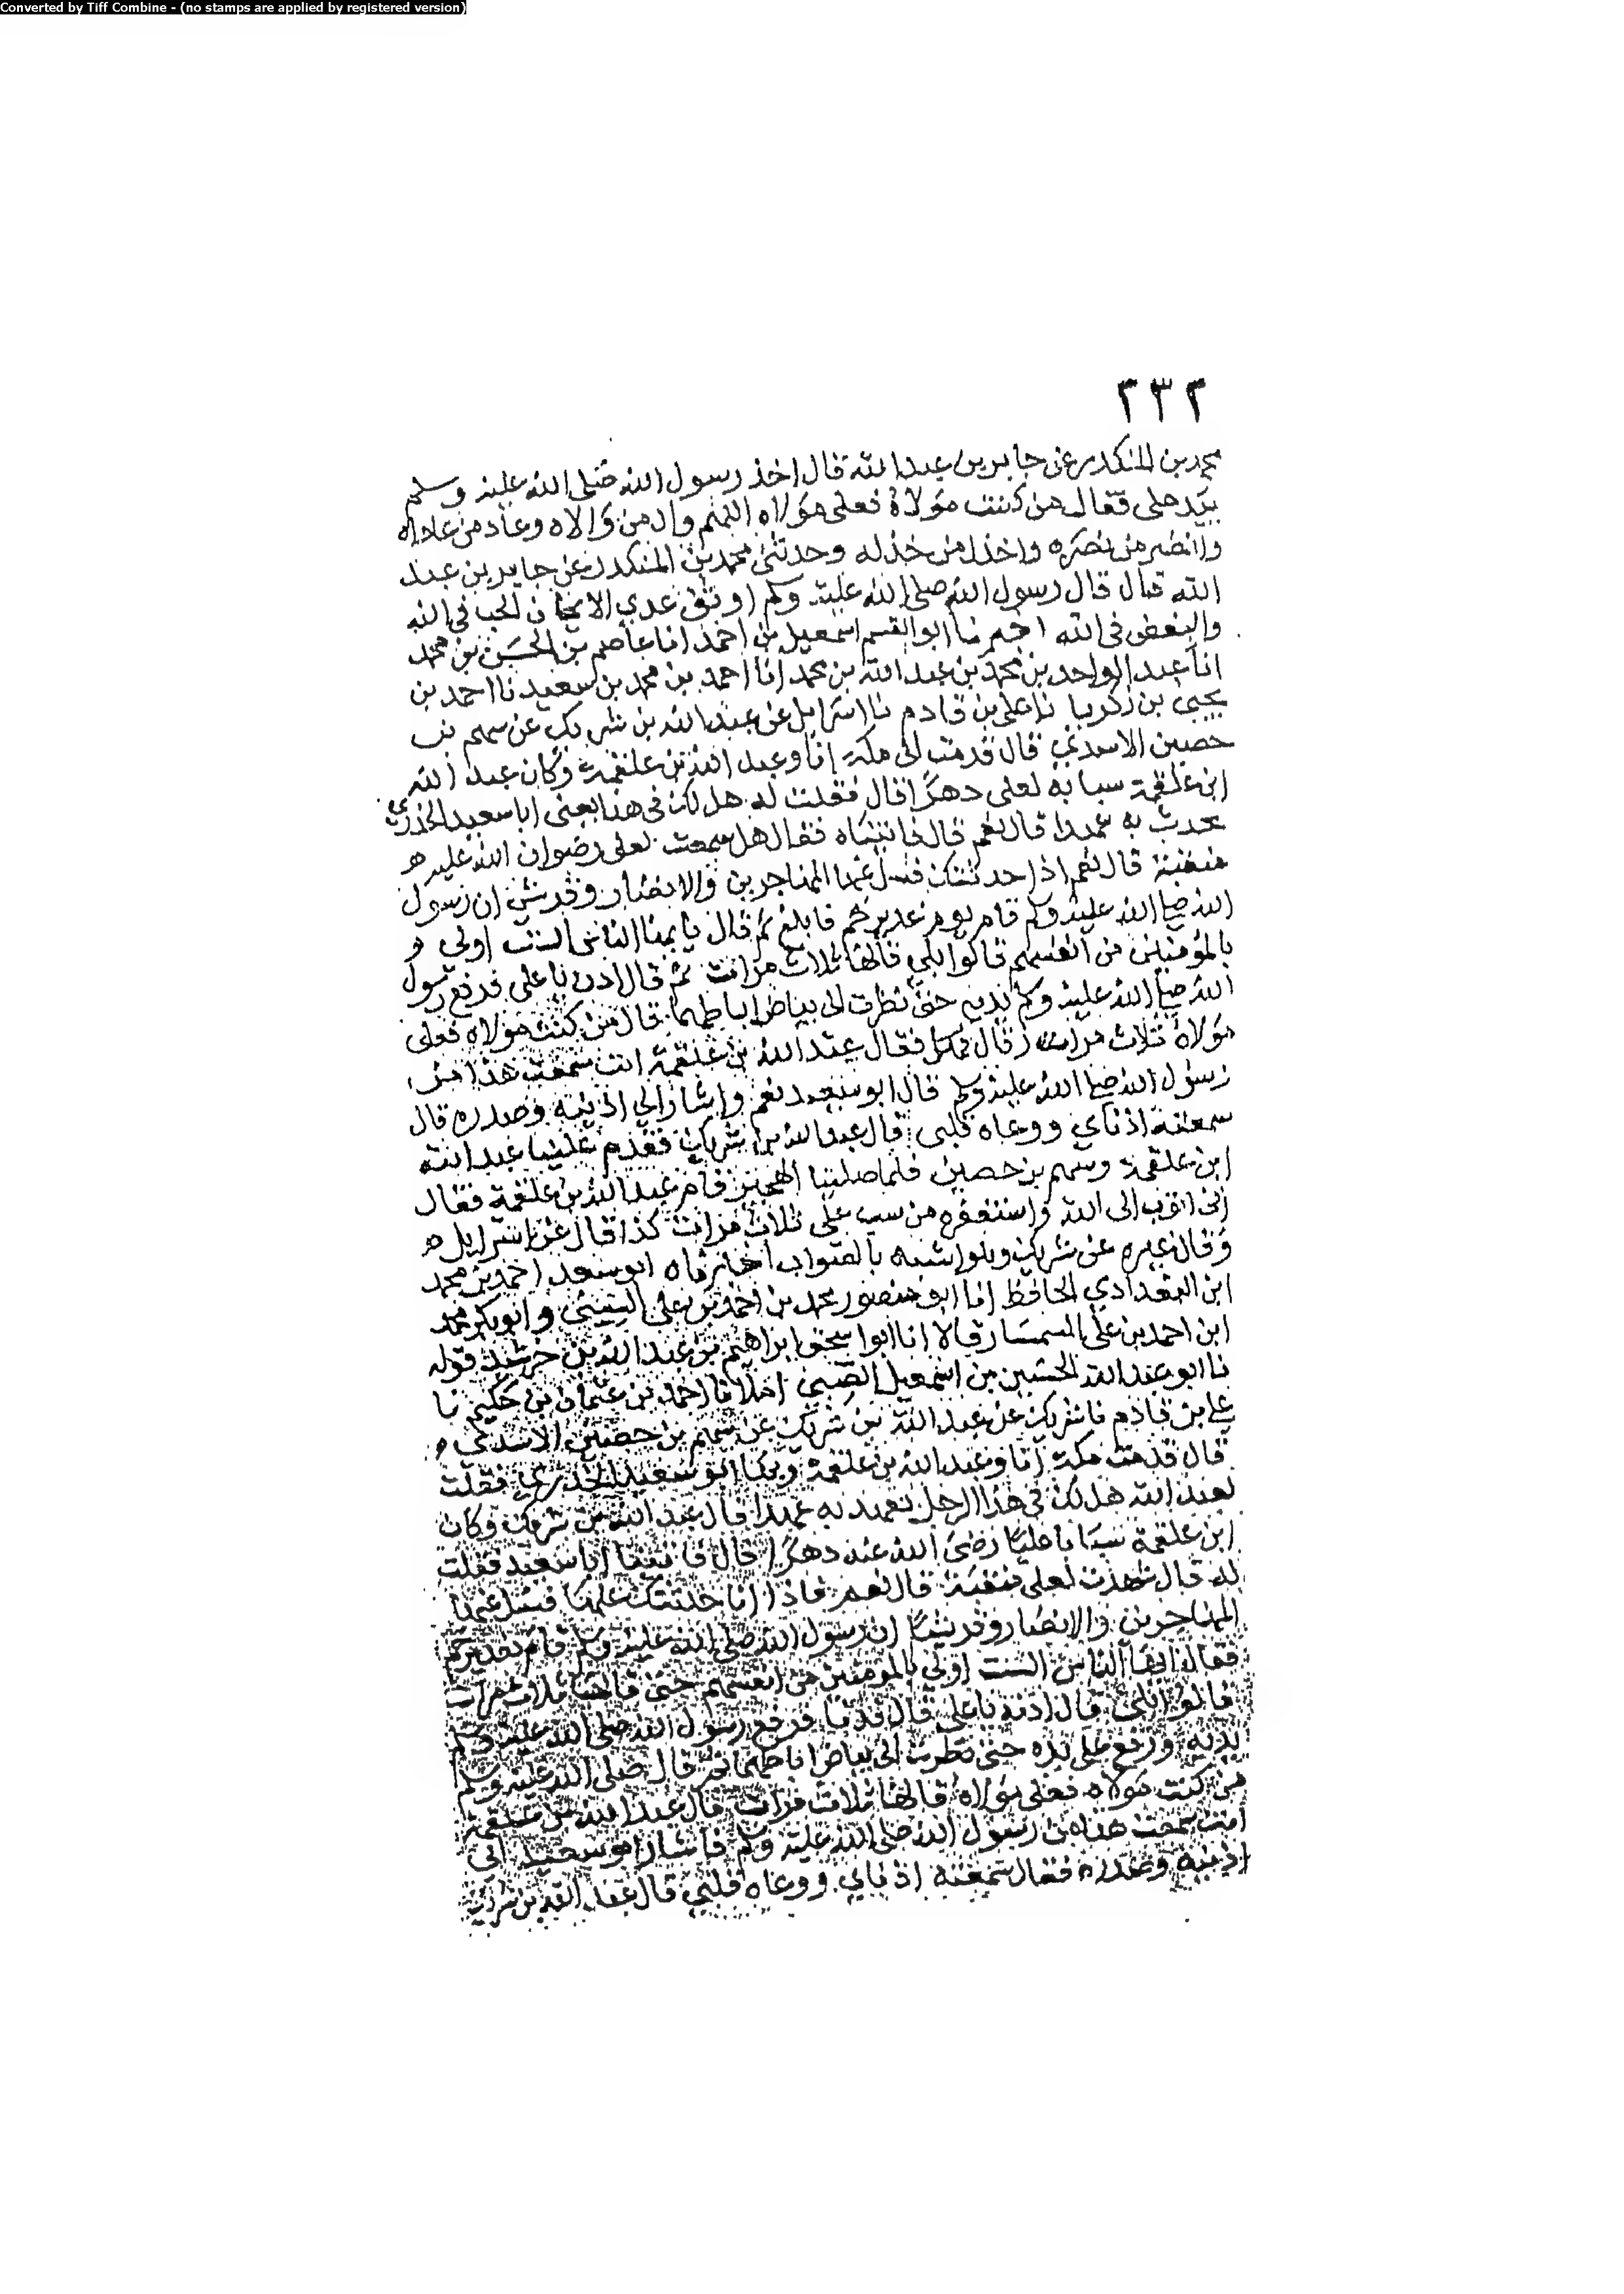 Converted by Tiff Combine - (no stamps are applied by registered version)
٢٣٢
محمد بن المنكدر عن جابر بن عبد الله قال اخذ رسول الله صلى الله عليه وسلم
بيد علي فقال من كنت مولاه فعلي مولاه اللهم وال من والاه وعاد من عاداه
وانصر من نصره واخذل من خذله وحدثني محمد بن المنكدر عن جابر بن عبد
الله قال قال رسول الله صلى الله عليه وسلم اوثق عرى الايمان الحب في الله
والبغض في الله اخبرنا ابو القسم اسمعيل بن احمد انا عاصم بن الحسن بن محمد
انا عبد الواحد بن محمد بن عبد الله بن محمد انا احمد بن محمد بن سعيد نا احمد بن
يحيى بن زكريا نا علي بن قادم نا اسرايل عن عبد الله بن شريك عن سهم بن
حصين الاسدي قال قدمت الى مكة انا وعبد الله بن علقمة وكان عبد الله
ابن علقمة سبابة لعلي دهرا قال فقلت له هل لك في هذا يعني ابا سعيد الخدري
نحدث به عهدا قال نعم قال فاتيناه فقال هل سمعت لعلي رضوان الله عليه
منقبة قال نعم اذا حدثتك فسل عنها المهاجرين والانصار وقريش ان رسول
الله صلى الله عليه وسلم قام يوم غدير خم فابلغ ثم قال يا يها الناس الست اولى
بالمؤمنين من انفسهم قالوا بلى قالها ثلاث مرات ثم قال ادن يا علي فرفع رسول
الله صلى الله عليه وسلم يديه حتى نظرت الى بياض اباطهما قال من كنت مولاه فعلي
مولاه ثلاث مرات قال فقال عبد الله بن علقمة انت سمعت هذا من
رسول الله صلى الله عليه وسلم قال ابو سعيد نعم واشار الى اذنيه وصدره قال
سمعته اذناي ووعاه قلبي قال عبد الله بن شريك فقدم علينا عبد الله
ابن علقمة وسهم بن حصين فلما صلينا الهجير قام عبد الله بن علقمة فقال
اني اتوب الى الله واستغفره من سب علي ثلاث مرات كذا قال عن اسرايل
وقال غيره عن شريك وهو اشبه بالصواب اخبرناه ابو سعد احمد بن محمد
ابن البغدادي الحافظ انا ابو منصور محمد بن احمد بن علي وابو بكر محمد
ابن احمد بن علي السمسار قالا انا ابو اسحق ابراهيم بن عبد الله بن خرشيد قوله
نا ابو عبد الله الحسين بن اسمعيل الضبي املا نا احمد بن عثمان بن حكيم نا
علي بن قادم نا شريك عن عبد الله بن شريك عن سهم بن حصين الاسدي
قال قدمت مكة انا وعبد الله بن علقمة وبها ابو سعيد الخدري فقلت
لعبد الله هل لك في هذا الرجل نعهد به عهدا قال عبد الله بن شريك وكان
ابن علقمة سبابا عليا رضي الله عنه دهرا قال فاتينا ابا سعيد فقلت
له قال شهدت لعلي منقبة قال نعم فاذا انا حدثتك عنها فسل عنها
المهاجرين والانصار وقريشا ان رسول الله صلى الله عليه وسلم قام بغدير خم
فقال ايها الناس الست اولى بالمومنين من انفسهم حتى قالها ثلاث مرات
قالوا بلى قال ادنه يا علي قال فدنا فرفع رسول الله صلى الله عليه وسلم
يديه ورفع علي يده حتى نظرت الى بياض اباطهما ثم قال صلى الله عليه وسلم
من كنت مولاه فعلي مولاه قالها ثلاث مرات قال عبد الله بن علقمة
انت سمعت هذا من رسول الله صلى الله عليه وسلم فاشار ابو سعيد الى
اذنيه وصدره فقال سمعته اذناي ووعاه قلبي قال عبد الله بن شريك